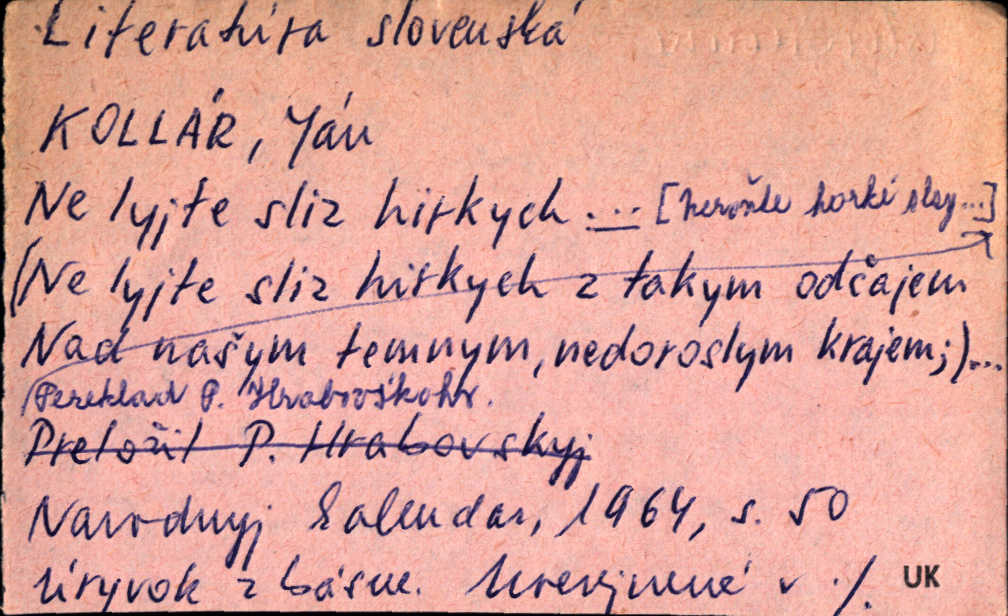 Literatúra slovenská
KOLLÁR, Ján
Ne lyjte sliz hirkych ... [Neroňte horké slzy ...]
(Ne lyjte sliz hirkych z takym odčajem
Nad našym temnym, nedoroslym krajem;)...
Pereklad P. Hrabovśkoho.
Preložil P. Hrabovskyj
Narodnyj kalendar, 1964, s. 50
Úryvok z básne. Uverejnené v ./. UK